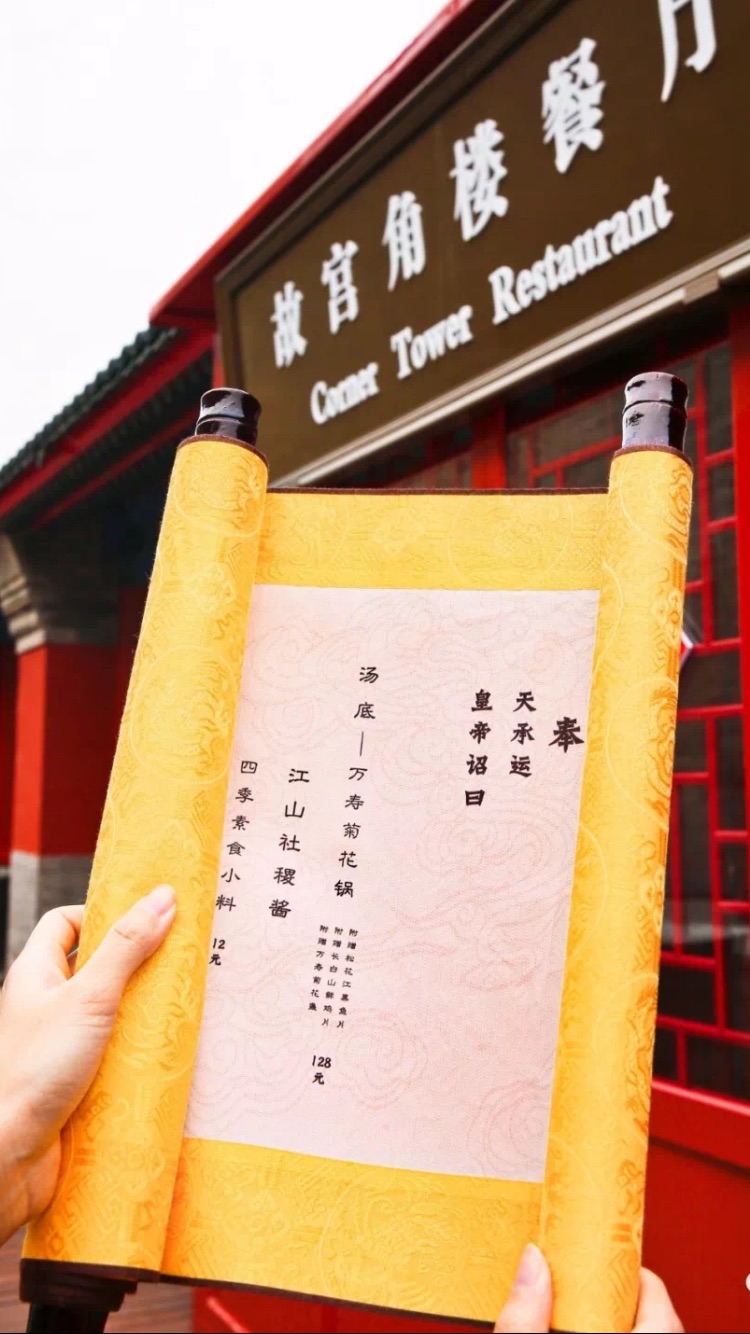 故宫角楼餐厅
Corner Tower Restaurant
奉
天承运
皇帝诏曰
汤底—万寿菊花锅
附赠松花江黑鱼片
附赠长白山鲜鸡片
附赠万寿菊花盏
128元
江山社稷酱
四季素食小料
12元